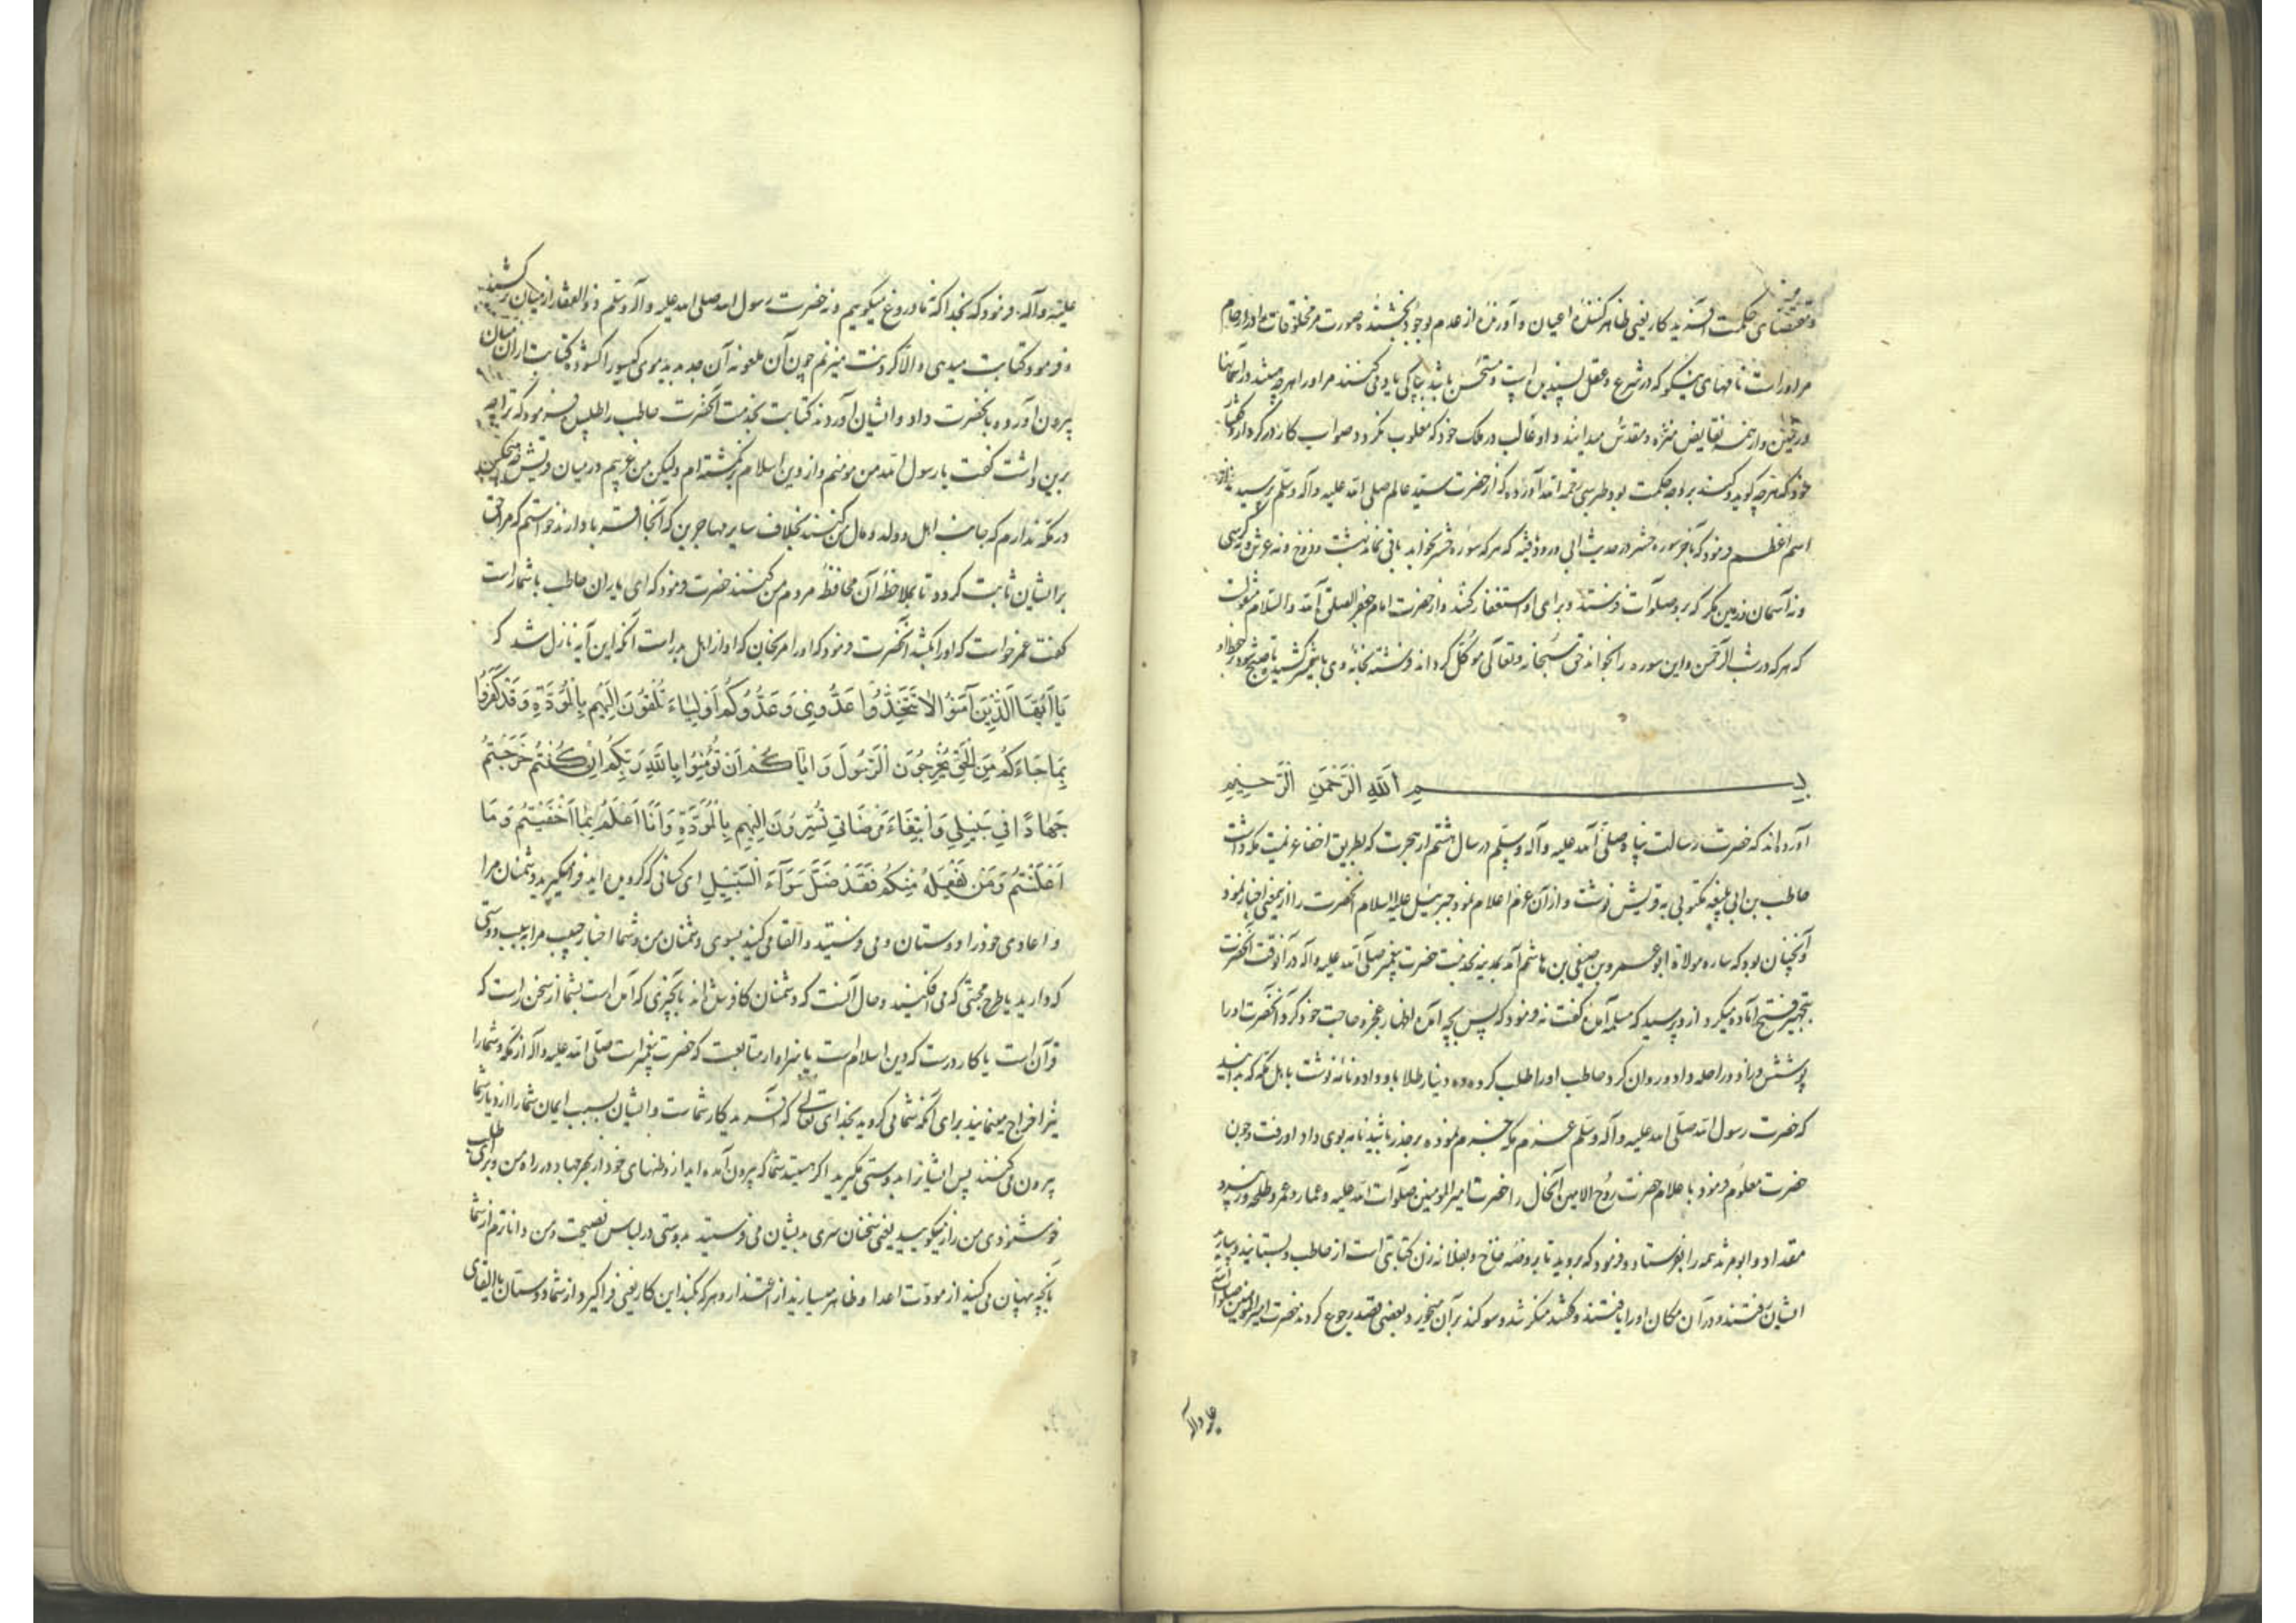 و مقتضای حکمت آفریدگار یعنی ظاهر کننده اعیان و آورنده از عدم بوجود بخشنده صورت مر مخلوقات را در ارحام
مر او راست نامهای نیکو که در شرع و عقل پسندیده است و مستحسن باشد بپاکی یاد می کنند مر او را هرچه هستند در آسمانها
و زمین و از همه نقایص منزه و مقدس میدانند و او غالب در ملک خود که مغلوب نگردد و صواب کار در کردار و گفتار
خود که هرچه کوید و کند بر وجه حکمت بود طبرسی رحمه الله آورده که از حضرت سید عالم صلی الله علیه وآله وسلم پرسیدند از
اسم اعظم فرمود که بآخر سوره حشر در حدیث ابی ورود یافته که هر که سوره حشر بخواند باقی نماند بهشت و دوزخ و نه عرش و نه کرسی
و نه آسمان و زمین مگر که برو صلوات فرستند و برای او استغفار کنند و از حضرت امام جعفر الصلوة الله والسلام منقولست
که هر که در شب الرحمن و این سوره را بخواند حق سبحانه و تعالی موکل گرداند فرشته بخانه وی با شمشیر کشیده تا صبح شود در حفظ او
بسم الله الرحمن الرحیم
آورده اند که حضرت رسالت پناه صلی الله علیه وآله وسلم در سال هشتم از هجرت که بطریق اخفا عزیمت مکه داشت
حاطب بن ابی بلتعه مکتوبی به قریش نوشت و از آن عزم اعلام نمود جبرئیل علیه السلام آنحضرت را از یمعنی اخبار نمود
و آنچنان بود که ساره مولاة ابوعمرو بن صیفی بن هاشم آمد بمدینه بخدمت حضرت پیغمبر صلی الله علیه وآله در آنوقت آنحضرت
بتجهیز فتح آماده میکرد از و پرسید که مسلمه آمدن گفت نه فرمود که پس بچه آمدن اظهار عجز و حاجت خود کرد آنحضرت او را
پوشش و زاد و راحله داد و روان کرد حاطب او را طلب کرده ده دینار طلا باو داد و نامه نوشت باهل مکه که بدانید
که حضرت رسول الله صلی الله علیه وآله وسلم عزم مکه جزم نموده بر حذر باشید نامه بوی داد او رفت و چون
حضرت معلوم فرمود باعلام حضرت روح الامین آنحال را حضرت امیر المومنین صلوات الله علیه و عمار و عمر و طلحه و زبیر و
مقداد و ابو مرثد همه را بفرستاد و فرمود که بروید تا بروضه خاخ و بفلانه زن کتابتی است از حاطب بستانید و بیارید
ایشان رفتند و در آن مکان او را یافتند و گفتند منکر شد و سوگند بر آن میخورد و بعضی قصد رجوع کردند حضرت امیر المومنین صلوات الله
علیه وآله
علیه وآله فرمود که بخدا که نه ما دروغ میگوییم و نه حضرت رسول الله صلی الله علیه وآله وسلم و ذوالفقار از میان بر کشید
و فرمود کتابت میدهی و الا گردنت میزنم چون آن ملعونه آن جد بدید موی کیسو را گشوده کتابت از آن میان
بیرون آورده بآنحضرت داد و ایشان آوردند کتابت بخدمت آنحضرت حاطب را طلبیده فرمود که ترا چه
برین داشت گفت یا رسول الله من مومنم و از دین اسلام برنگشته ام ولیکن من غریبم در میان قریش و هیچکس
در مکه ندارم که جانب اهل و ولد و مال من کند بخلاف سایر مهاجرین که آنجا اقربا دارند خواستم که مرا حقی
بر ایشان ثابت کردد تا بملاحظه آن محافظه مردم من کنند حضرت فرمود که ای یاران حاطب باشما راست
گفت عمر خواست که او را بکشد آنحضرت فرمود که او را مرنجان که او از اهل بدر است آنکه این آیه نازل شد که
یَا أَیُّهَا الَّذِینَ آمَنُوا لَا تَتَّخِذُوا عَدُوِّی وَعَدُوَّکُمْ أَوْلِیَاءَ تُلْقُونَ إِلَیْهِم بِالْمَوَدَّةِ وَقَدْ کَفَرُوا
بِمَا جَاءَکُم مِنَ الْحَقِّ یُخْرِجُونَ الرَّسُولَ وَإِیَّاکُمْ أَن تُؤْمِنُوا بِاللَّهِ رَبِّکُمْ إِن کُنتُمْ خَرَجْتُمْ
جِهَادًا فِی سَبِیلِی وَابْتِغَاءَ مَرْضَاتِی تُسِرُّونَ إِلَیْهِم بِالْمَوَدَّةِ وَأَنَا أَعْلَمُ بِمَا أَخْفَیْتُمْ وَمَا
أَعْلَنتُمْ وَمَن یَفْعَلْهُ مِنکُمْ فَقَدْ ضَلَّ سَوَاءَ السَّبِیلِ ای کسانی که گرویده اید فرا مگیرید دشمنان مرا
و اعادی خود را دوستان و می فرستید و القا می کنید بسوی دشمنان من و شما اخبار حبیب مرا بسبب دوستی
که دارید یا طرح محبتی که می افکنید و حال آنست که دشمنان کافر شده اند بآنچیزی که آمده است بشما از سخن راست که
قرآن است یا کار درست که دین اسلام است یا سزاوار متابعت که حضرت پیغمبر است صلی الله علیه وآله از مکه و شما را
نیز اخراج مینمایند برای آنکه شما می گروید بخدای تعالی که آفریدکار شماست و ایشان بسبب ایمان شما را از دیار شما
بیرون می کنند پس ایشانرا بدوستی مگیرید اگر هستید شما که بیرون آمده اید از وطنهای خود از بهر جهاد در راه من و برای طلب
خوشنودی من راز میگویید یعنی سخنان سری بدیشان می فرستید بدوستی در لباس نصیحت و من داناترم از شما
بآنچه پنهان می کنید از مودت اعدا و ظاهر میسازید از اعتذار و هر که بکند این کار یعنی فرا گیرد از شما دوستان با القای